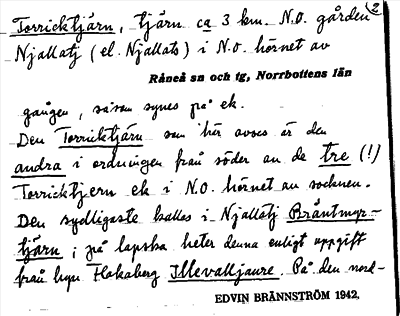 2
Torricktjärn, tjärn ca 3 km. N.O. gården
Njallatj (el. Njallats) i N.O. hörnet av
Råneå sn och tg, Norrbottens län
gången, såsom synes på ek.
Den Torricktjärn som här avses är den
andra i ordningen från söder av de tre (!)
Torricktjern ek i N.O. hörnet av socknen.
Den sydligaste kallas i Njallatj Bräntmyr-
tjärn; på lapska heter denna enligt uppgift
från byn Flakaberg Illevalkjaure. På den nord-
EDVIN BRÄNNSTRÖM 1942.